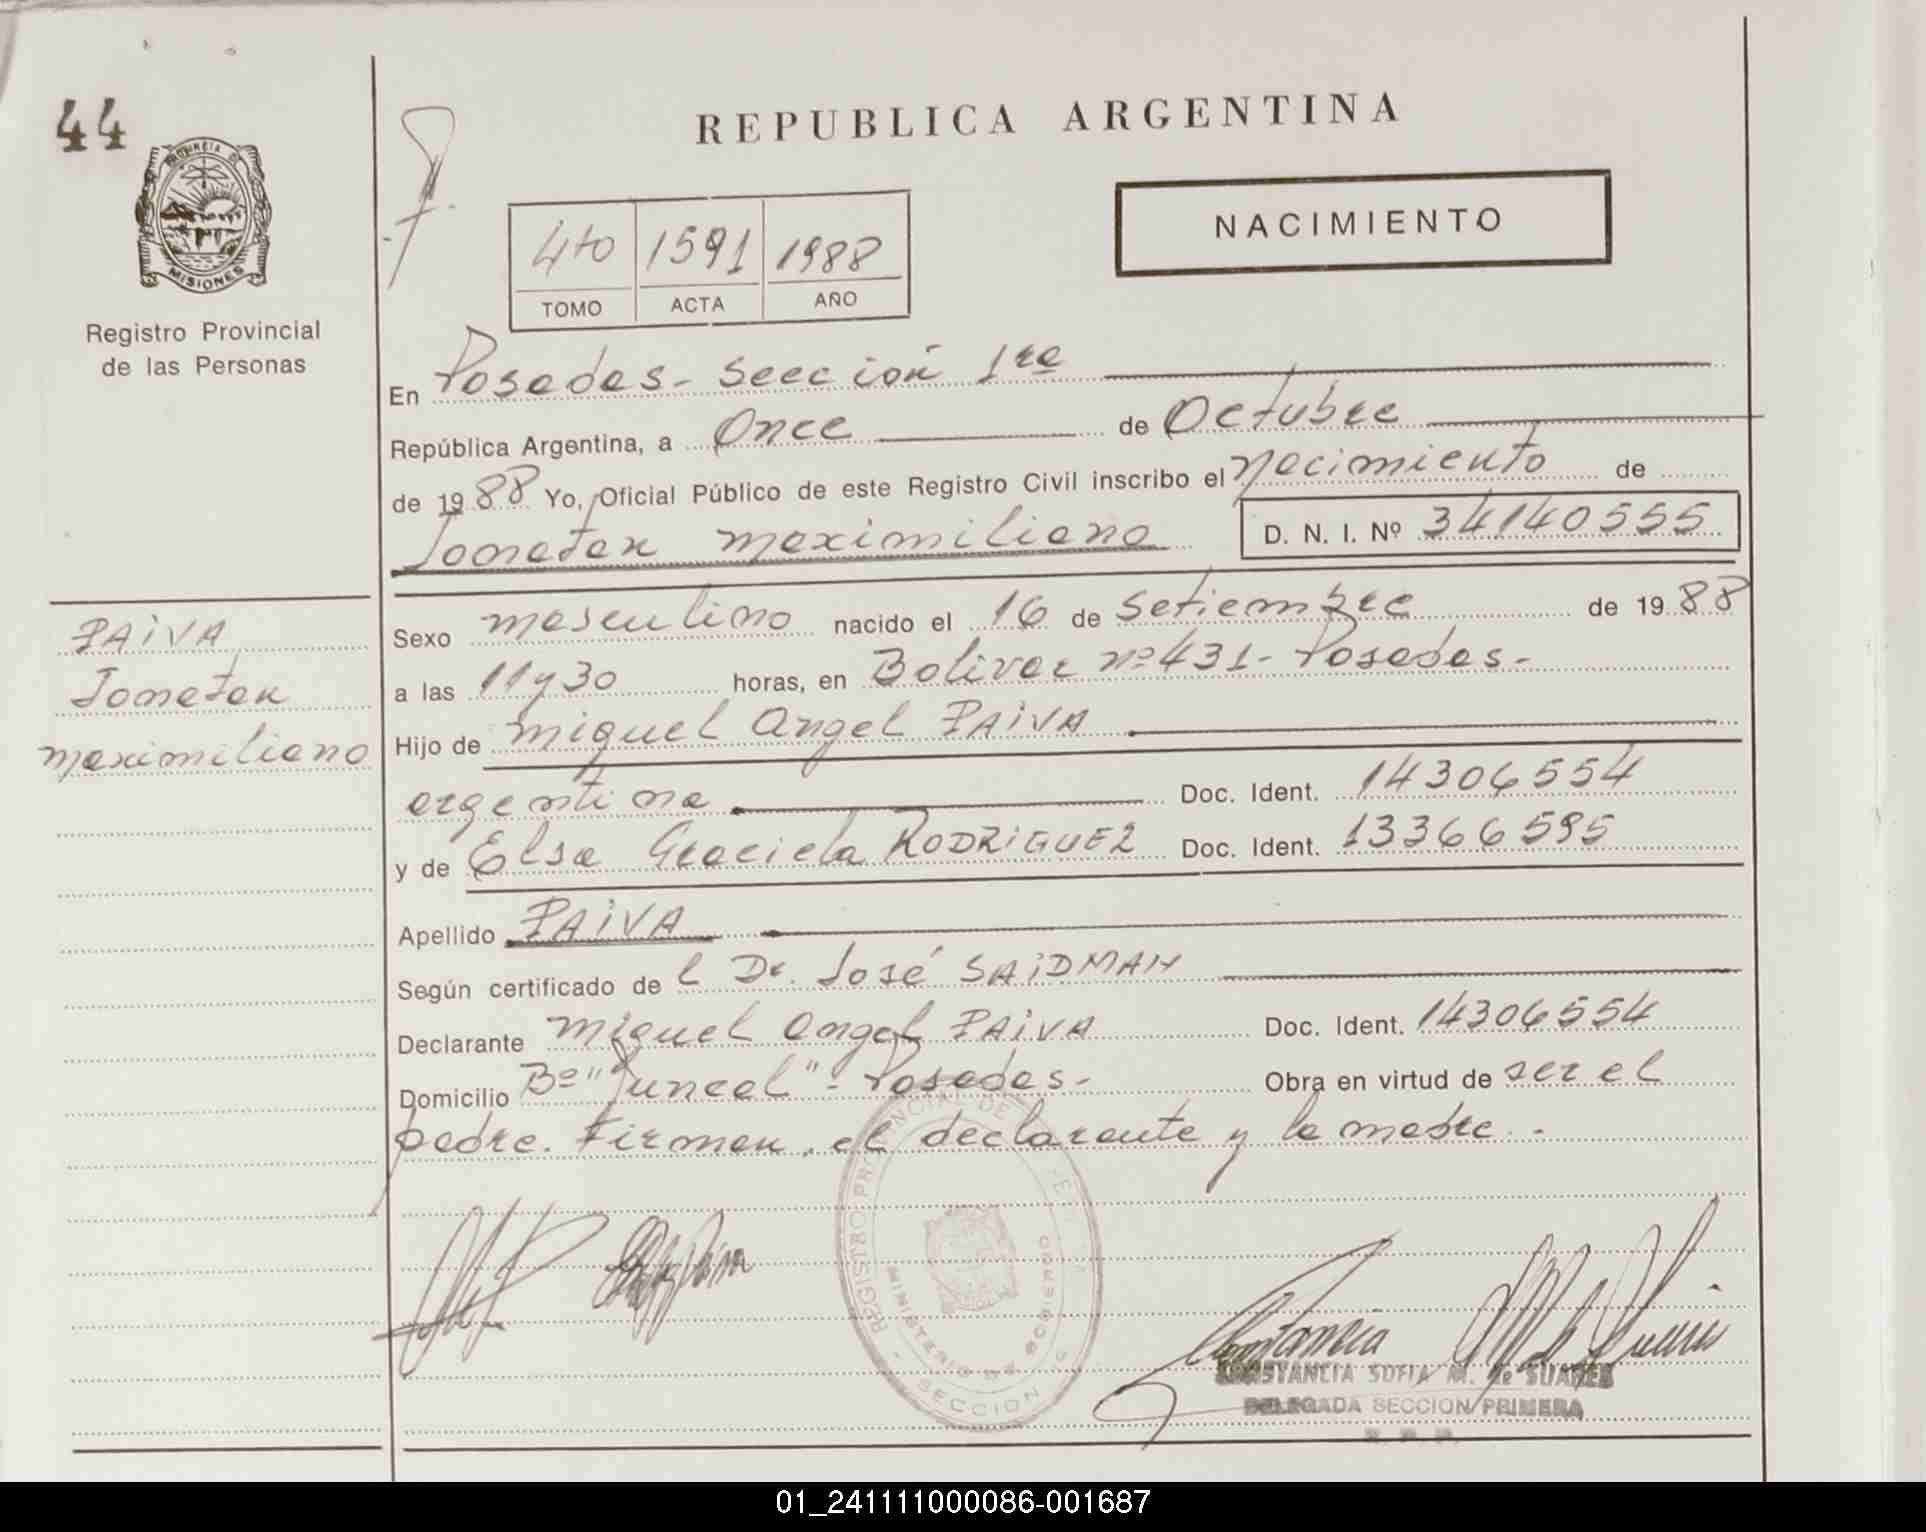 44
PROVINCIA DE
MISIONES
Registro Provincial
de las Personas
PAiVA
Jonatan
maximiliano
REPUBLICA ARGENTINA
4to 1591 1988
TOMO ACTA AÑO
NACIMIENTO
En Posadas - Sección 1ra
República Argentina, a Once de Octubre
de 1988 Yo, Oficial Público de este Registro Civil inscribo el nacimiento de
Jonatan maximiliano D. N. I. Nº 34140555
Sexo masculino nacido el 16 de Setiembre de 1988
a las 11y30 horas, en Bolivar nº 431 - Posadas -
Hijo de miguel angel PAiVA
argentina Doc. Ident. 14306554
y de Elsa Graciela RODRiGUEZ Doc. Ident. 13366595
Apellido PAiVA
Según certificado de l Dr. José SAiDMAN
Declarante miguel angel PAiVA Doc. Ident. 14306554
Domicilio Bº "Juncal" - Posadas - Obra en virtud de ser el
padre. Firman, el declarante y la madre. -
REGISTRO PROVINCIAL DE
MINISTERIO DE GOBIERNO
SECCION
CONSTANCIA SOFIA M. de SUAREZ
DELEGADA SECCION PRIMERA
01_241111000086-001687